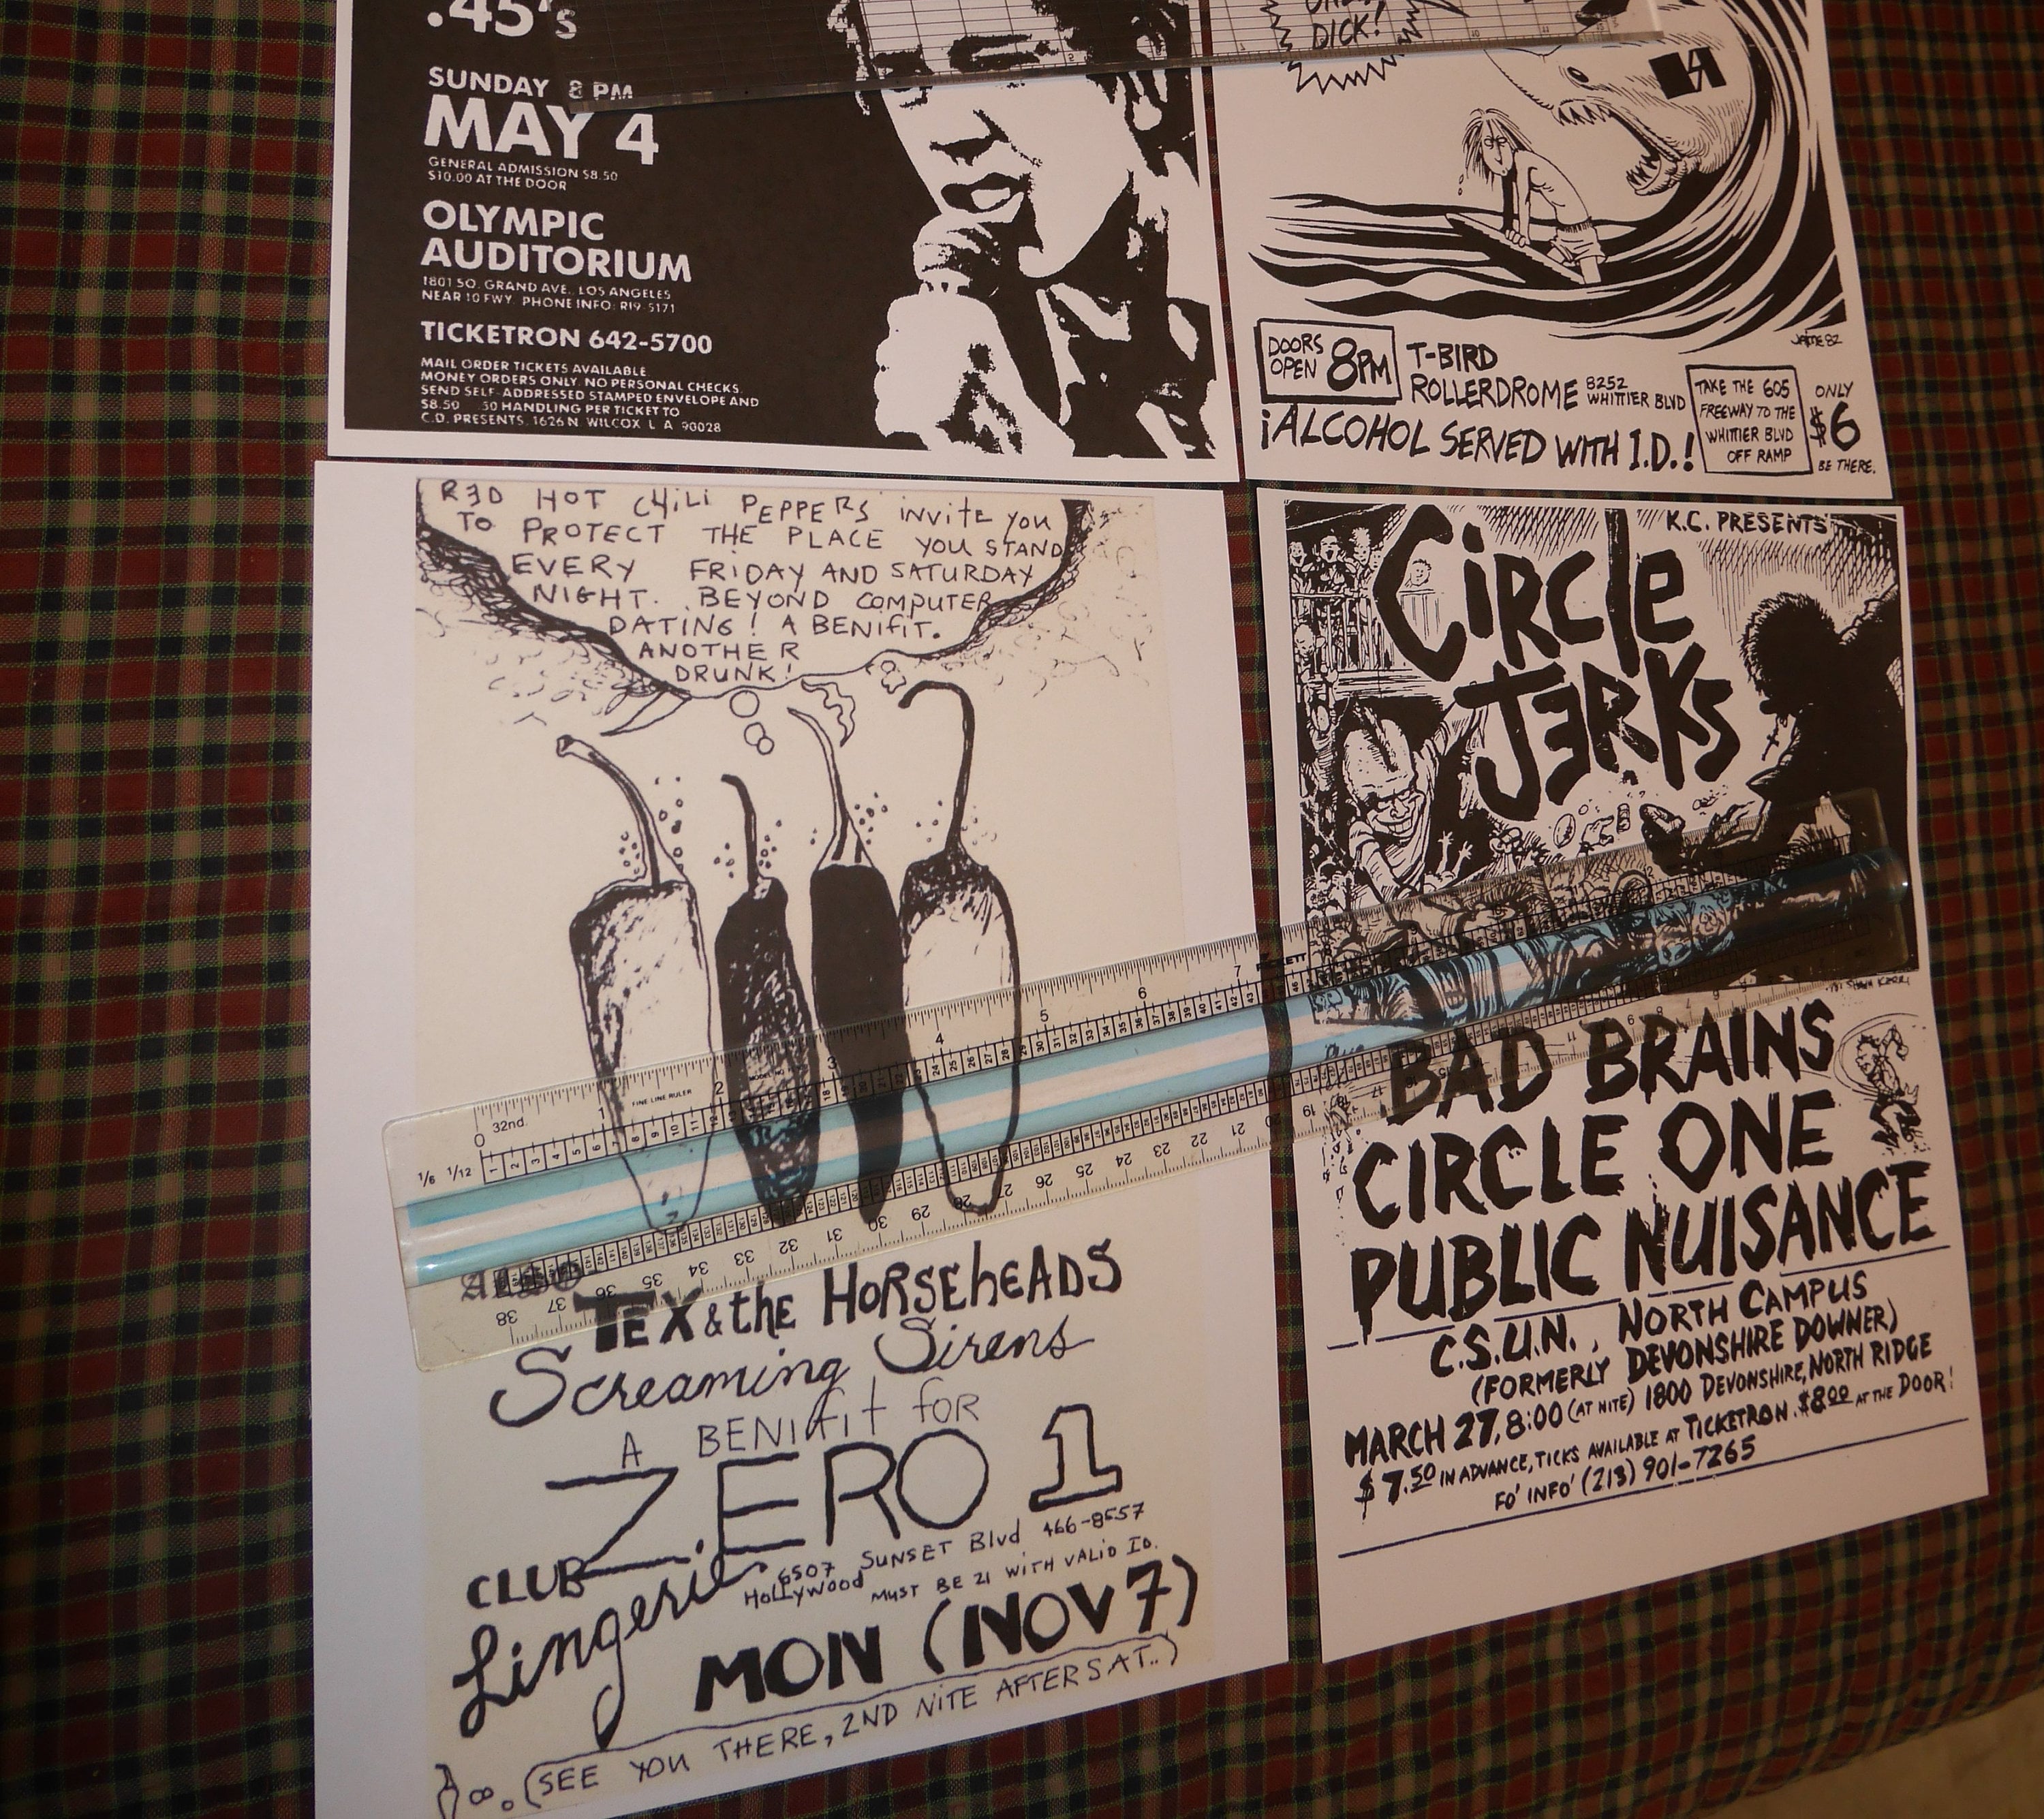 .45's
SUNDAY 8 PM
MAY 4
GENERAL ADMISSION $8.50
$10.00 AT THE DOOR
OLYMPIC
AUDITORIUM
1801 SO. GRAND AVE., LOS ANGELES
NEAR 10 FWY. PHONE INFO: RI9-5171
TICKETRON 642-5700
MAIL ORDER TICKETS AVAILABLE
MONEY ORDERS ONLY. NO PERSONAL CHECKS.
SEND SELF-ADDRESSED STAMPED ENVELOPE AND
$8.50 .50 HANDLING PER TICKET TO
C.D. PRESENTS, 1626 N. WILCOX L.A. 90028
DICK!
JAIME 82
DOORS
OPEN 8PM
T-BIRD
ROLLERDROME 8252
WHITTIER BLVD
TAKE THE 605
FREEWAY TO THE
WHITTIER BLVD
OFF RAMP
ONLY
$6
BE THERE.
¡ALCOHOL SERVED WITH I.D.!
RED HOT CHiLi PEPPERS invite you
TO PROTECT THE PLACE YOU STAND
EVERY FRiDAY AND SATURDAY
NIGHT. BEYOND COMPUTER
DATING! A BENIFiT.
ANOTHER
DRUNK!
FINE LINE RULER
32nd.
1/6 1/12
0 1 2 3 4 5 6 7
38 37 36 35 34 33 32 31 30 29 28 27 26 25 24 23 22 21 20 19 18 17
ALSO
TEX & the HORSEhEADS
Screaming Sirens
A BENIfit fOR
ZERO 1
CLUB
Lingerie
6507 SUNSET Blvd 466-8557
HOLLYWOOD MUST BE 21 WITH VALID ID.
MON (NOV 7)
(SEE YOU THERE, 2ND NITE AFTER SAT..)
K.C. PRESENTS
CiRCle
JERKS
'81 SHAWN KERRI
BAD BRAINS
CIRCLE ONE
PUBLIC NUISANCE
C.S.U.N., NORTH CAMPUS
(FORMERLY DEVONSHIRE DOWNER)
MARCH 27, 8:00 (AT NITE) 1800 DEVONSHIRE, NORTH RIDGE
$7.50 IN ADVANCE, TICKS AVAILABLE AT TICKETRON. $8.00 AT THE DOOR!
FO' INFO' (213) 901-7265